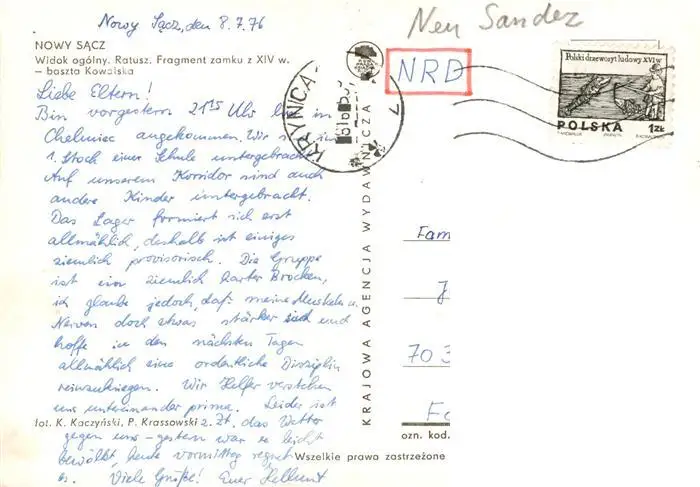 Nowy Sącz, den 8.7.76
Neu Sandez
NOWY SĄCZ
Widok ogólny. Ratusz. Fragment zamku z XIV w.
– baszta Kowalska
NRD
KRYNICA
Polski drzeworyt ludowy XVI w
POLSKA 1 ZŁ
Liebe Eltern!
Bin vorgestern 21 15 Uhr hier in
Chelmiec angekommen. Wir sind im
1. Stock einer Schule untergebracht.
Auf unserem Korridor sind auch
andere Kinder untergebracht.
Das Lager formiert sich erst
allmählich, deshalb ist einiges
ziemlich provisorisch. Die Gruppe
ist ein ziemlich harter Brocken,
ich glaube jedoch, daß meine Muskeln u.
Nerven doch etwas stärker sind und
hoffe in den nächsten Tagen
allmählich eine ordentliche Disziplin
reinzukriegen. Wir Helfer verstehen
uns untereinander prima. Leider ist
fot. K. Kaczyński, P. Krassowski
z. Zt. das Wetter
gegen uns – gestern war es leicht
bewölkt, heute vormittag regnet
es. Viele Grüße! Euer Hellmut
KRAJOWA AGENCJA WYDAWNICZA
Fam
J
70 3
ozn. kod.
Wszelkie prawa zastrzeżone